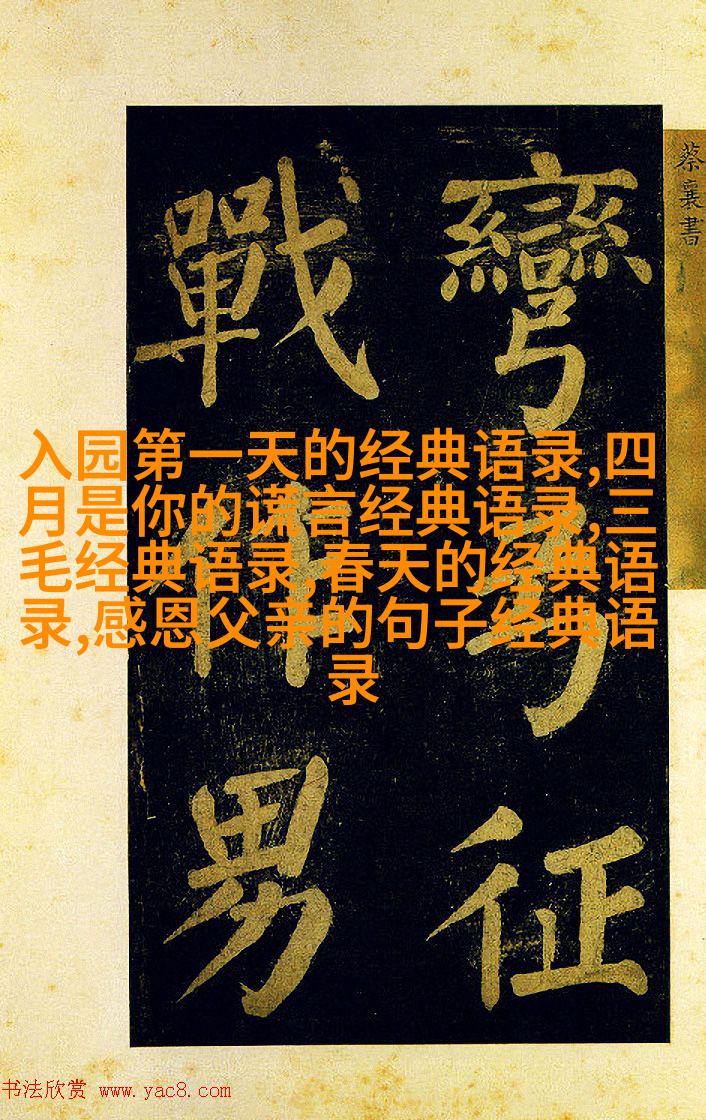 蔡襄書
彎弓征
戰作男
入园第一天的经典语录,四
月是你的谎言经典语录,三
毛经典语录,春天的经典语
录,感恩父亲的句子经典语
录
书法欣赏 www.yac8.com